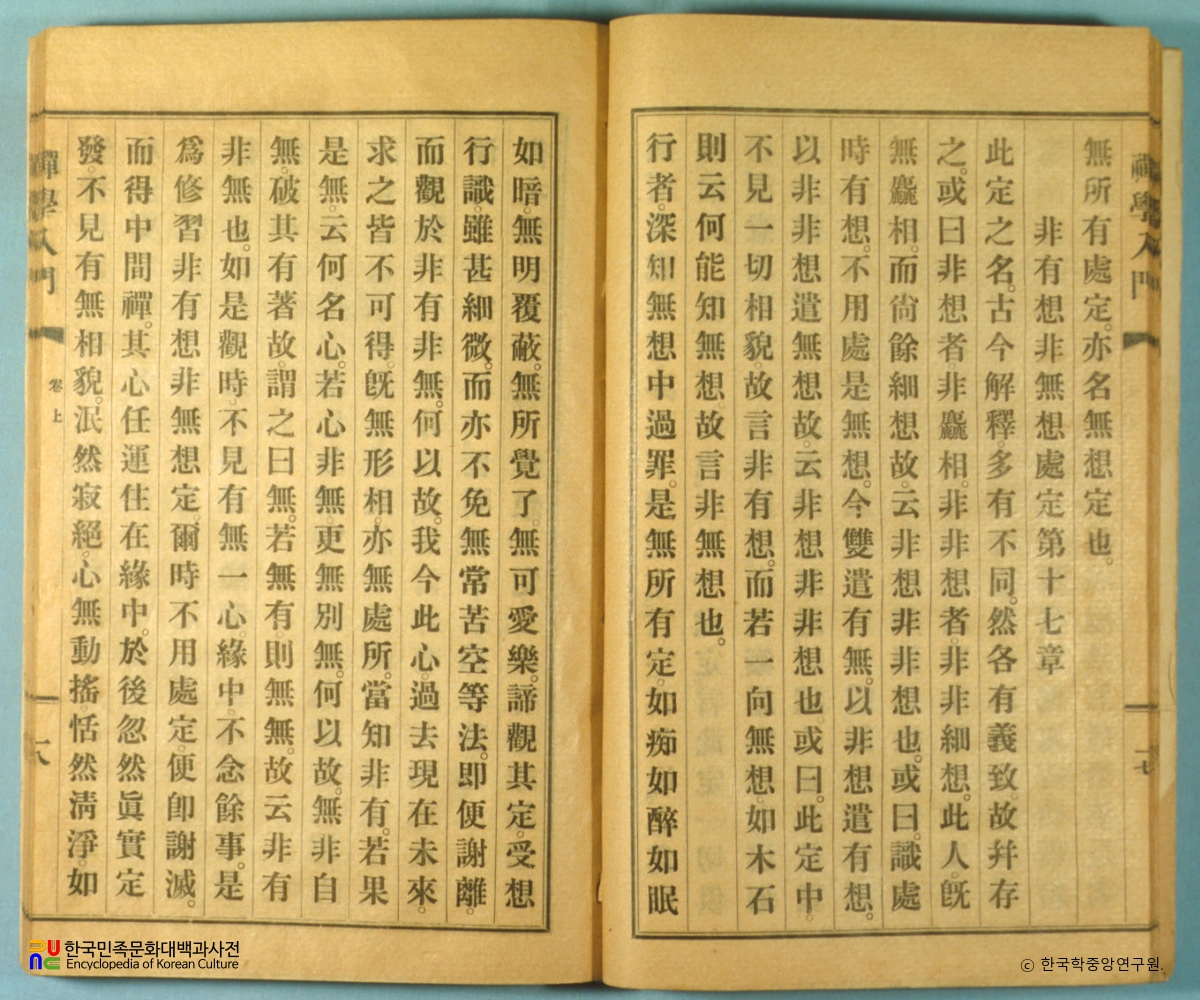 禪學入門
十七
無所有處定。亦名無想定也。
非有想非無想處定第十七章
此定之名。古今解釋。多有不同。然各有義致。故幷存
之。或曰非想者。非麤相。非非想者。非非細想。此人。旣
無麤相。而尙餘細想。故。云非想非非想也。或曰。識處
時有想。不用處是無想。今雙遣有無。以非想遣有想。
以非非想遣無想。故。云非想非非想也。或曰。此定中。
不見一切相貌故言非有想。而若一向無想。如木石
則云何能知無想故。言非無想也。
行者。深知無想中過罪。是無所有定。如痴如醉如眠
如暗。無明覆蔽。無所覺了。無可愛樂。諦觀其定。受想
行識。雖甚細微。而亦不免無常苦空等法。即便謝離。
而觀於非有非無。何以故。我今此心。過去現在未來。
求之皆不可得。旣無形相。亦無處所。當知非有。若果
是無。云何名心。若心非無更無別無。何以故。無非自
無。破其有著故謂之曰無。若無有。則無無。故云非有
非無也。如是觀時。不見有無一心。緣中。不念餘事。是
爲修習非有想非無想定爾時不用處定。便卽謝滅。
而得中間禪。其心任運住在緣中。於後忽然眞實定
發。不見有無相貌。泯然寂絕。心無動搖。恬然淸淨。如
禪學入門
卷上
十八
한국민족문화대백과사전
Encyclopedia of Korean Culture
ⓒ 한국학중앙연구원.